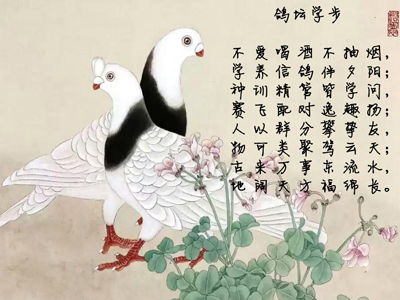 鸽坛学步
不爱喝酒不抽烟；
学养信鸽伴夕阳；
种训精管皆学问；
赛飞配对逸趣扬；
人以群分攀挚友；
物可类聚驾云天；
古来万事东流水，
地阔天方福绵长。